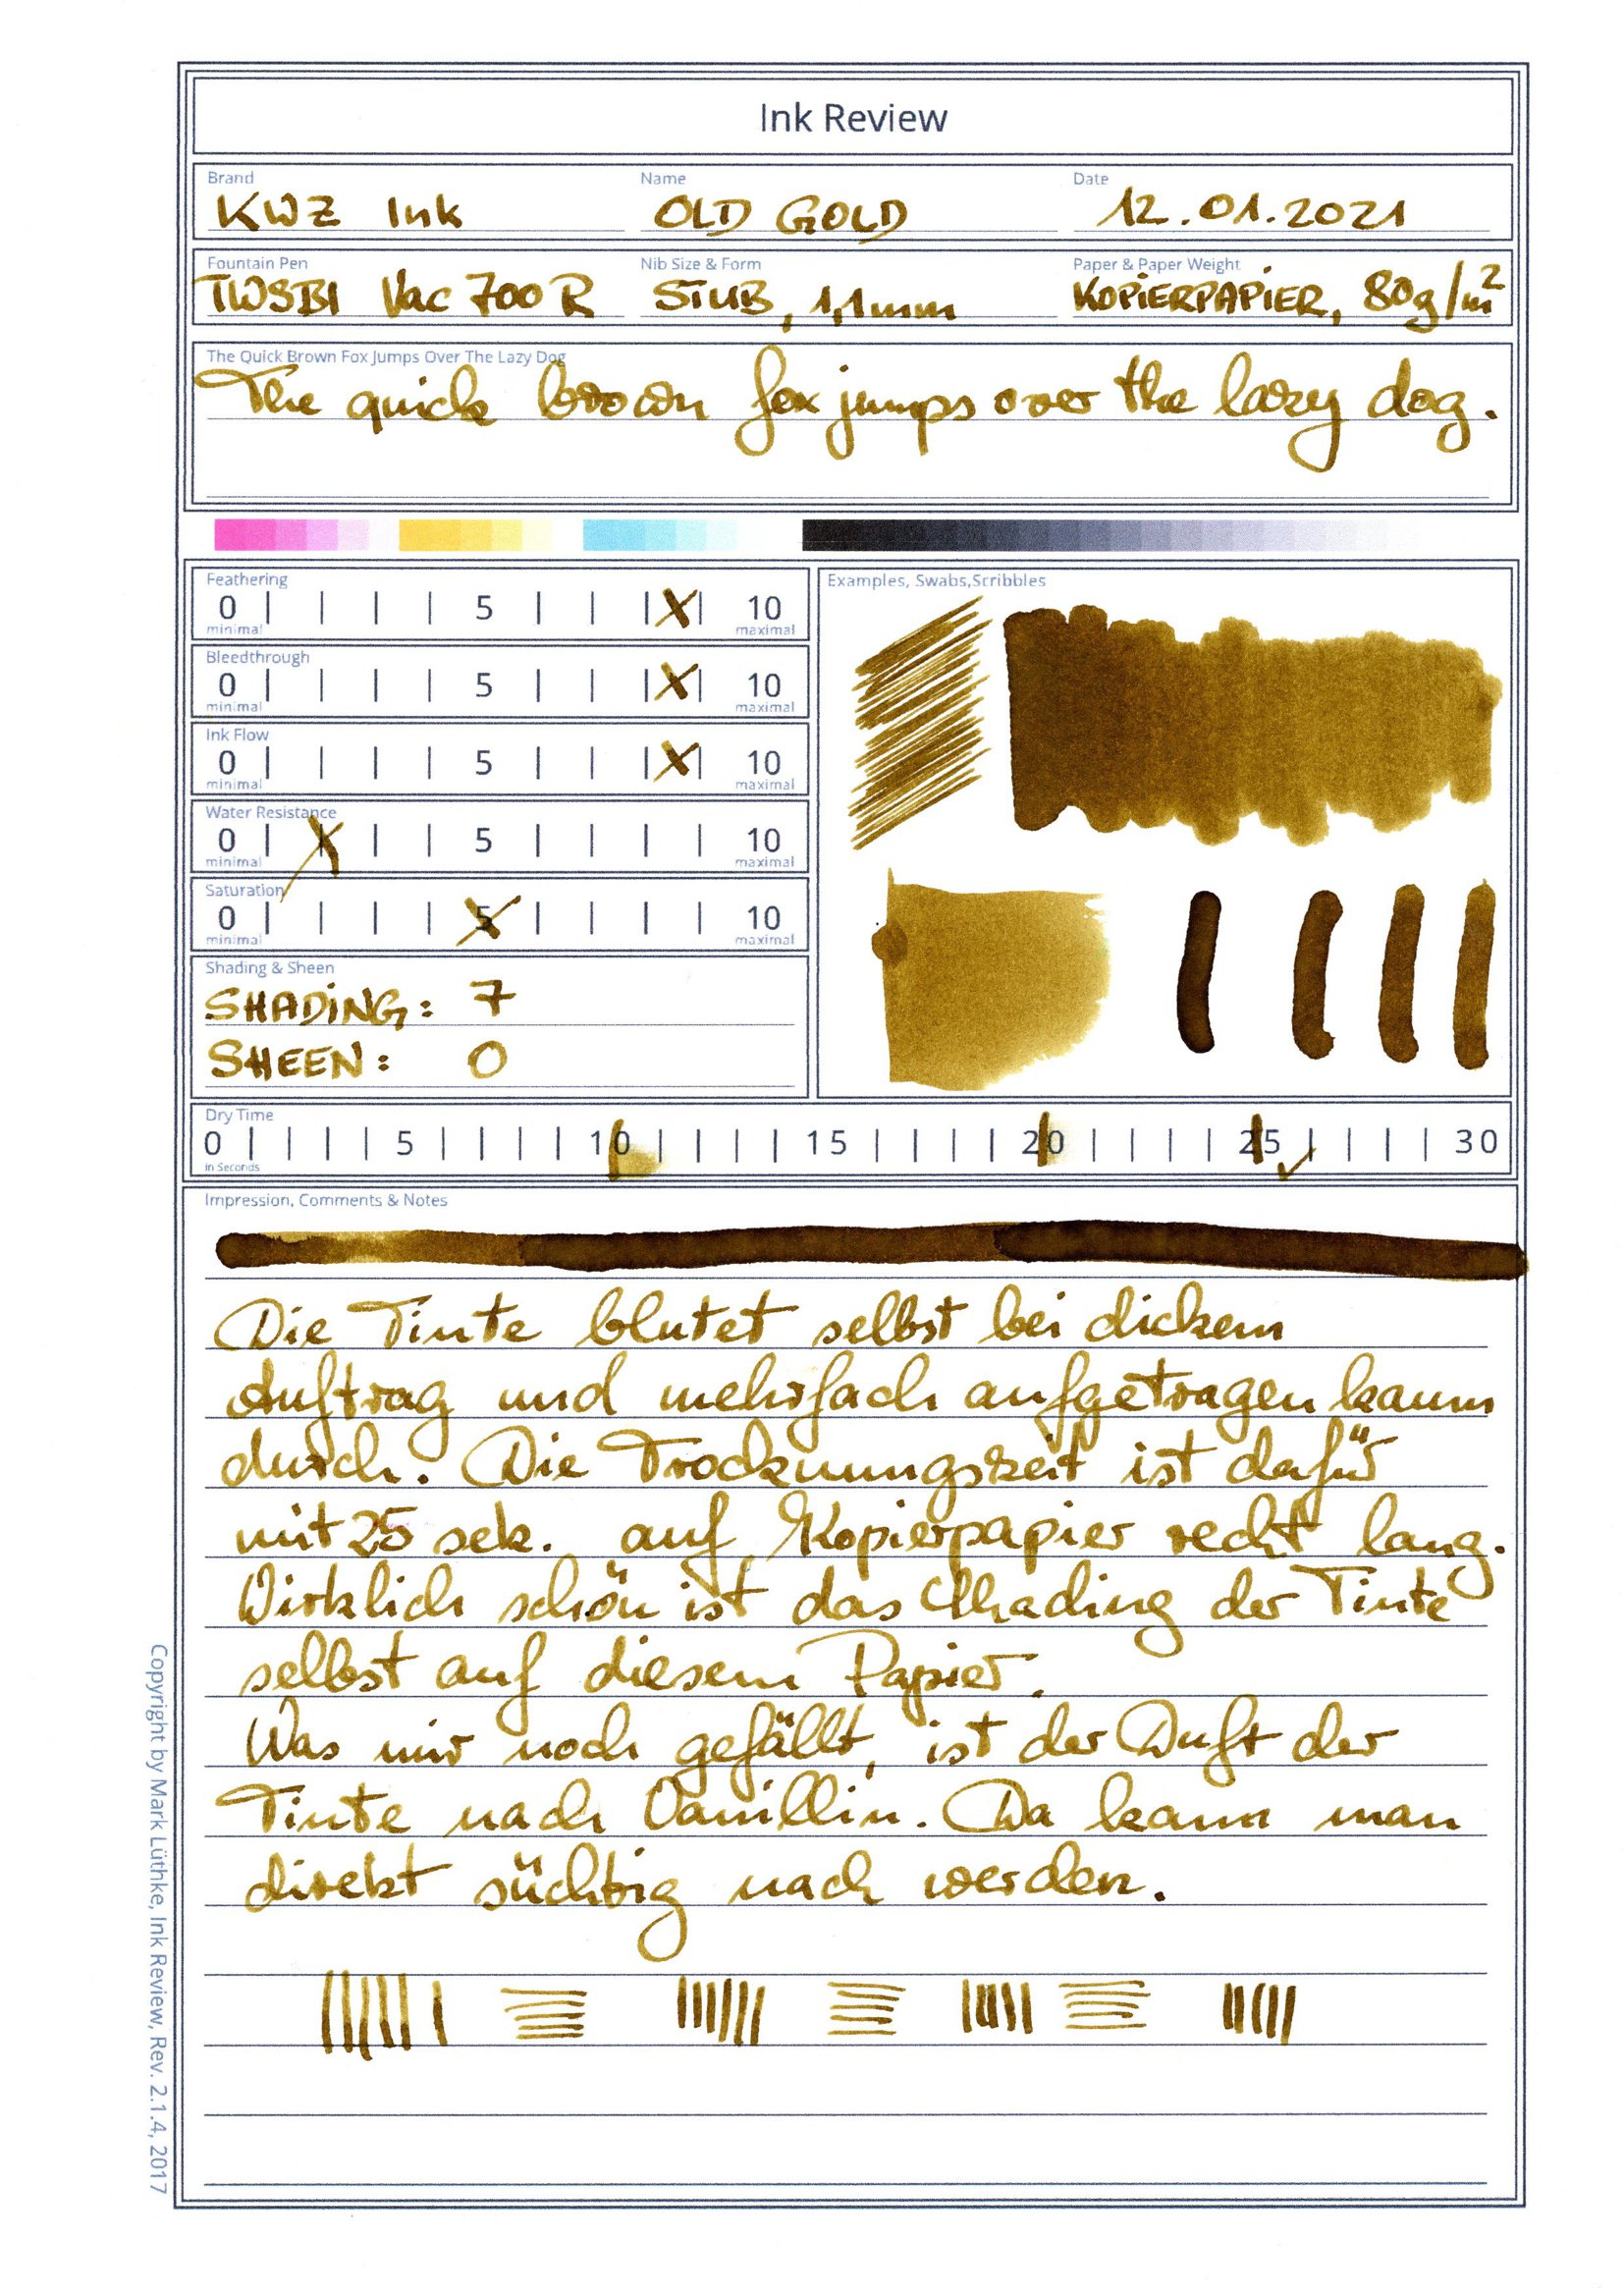 Ink Review
Brand Name Date
KWZ Ink OLD GOLD 12.01.2021
Fountain Pen Nib Size & Form Paper & Paper Weight
TWSBI Vac 700 R STUB, 1,1mm KOPIERPAPIER, 80g/m²
The Quick Brown Fox Jumps Over The Lazy Dog
The quick brown fox jumps over the lazy dog.
Feathering
0 5 10
minimal maximal
Bleedthrough
0 5 10
minimal maximal
Ink Flow
0 5 10
minimal maximal
Water Resistance
0 5 10
minimal maximal
Saturation
0 5 10
minimal maximal
Shading & Sheen
SHADING: 7
SHEEN: 0
Examples, Swabs,Scribbles
Dry Time
0 5 10 15 20 25 30
in Seconds
Impression, Comments & Notes
Die Tinte blutet selbst bei dickem
Auftrag und mehrfach aufgetragen kaum
durch. Die Trocknungszeit ist dafür
mit 25 sek. auf Kopierpapier recht lang.
Wirklich schön ist das Shading der Tinte
selbst auf diesem Papier.
Was mir noch gefällt, ist der Duft der
Tinte nach Vanillin. Da kann man
direkt süchtig nach werden.
Copyright by Mark Lüthke, Ink Review, Rev. 2.1.4, 2017